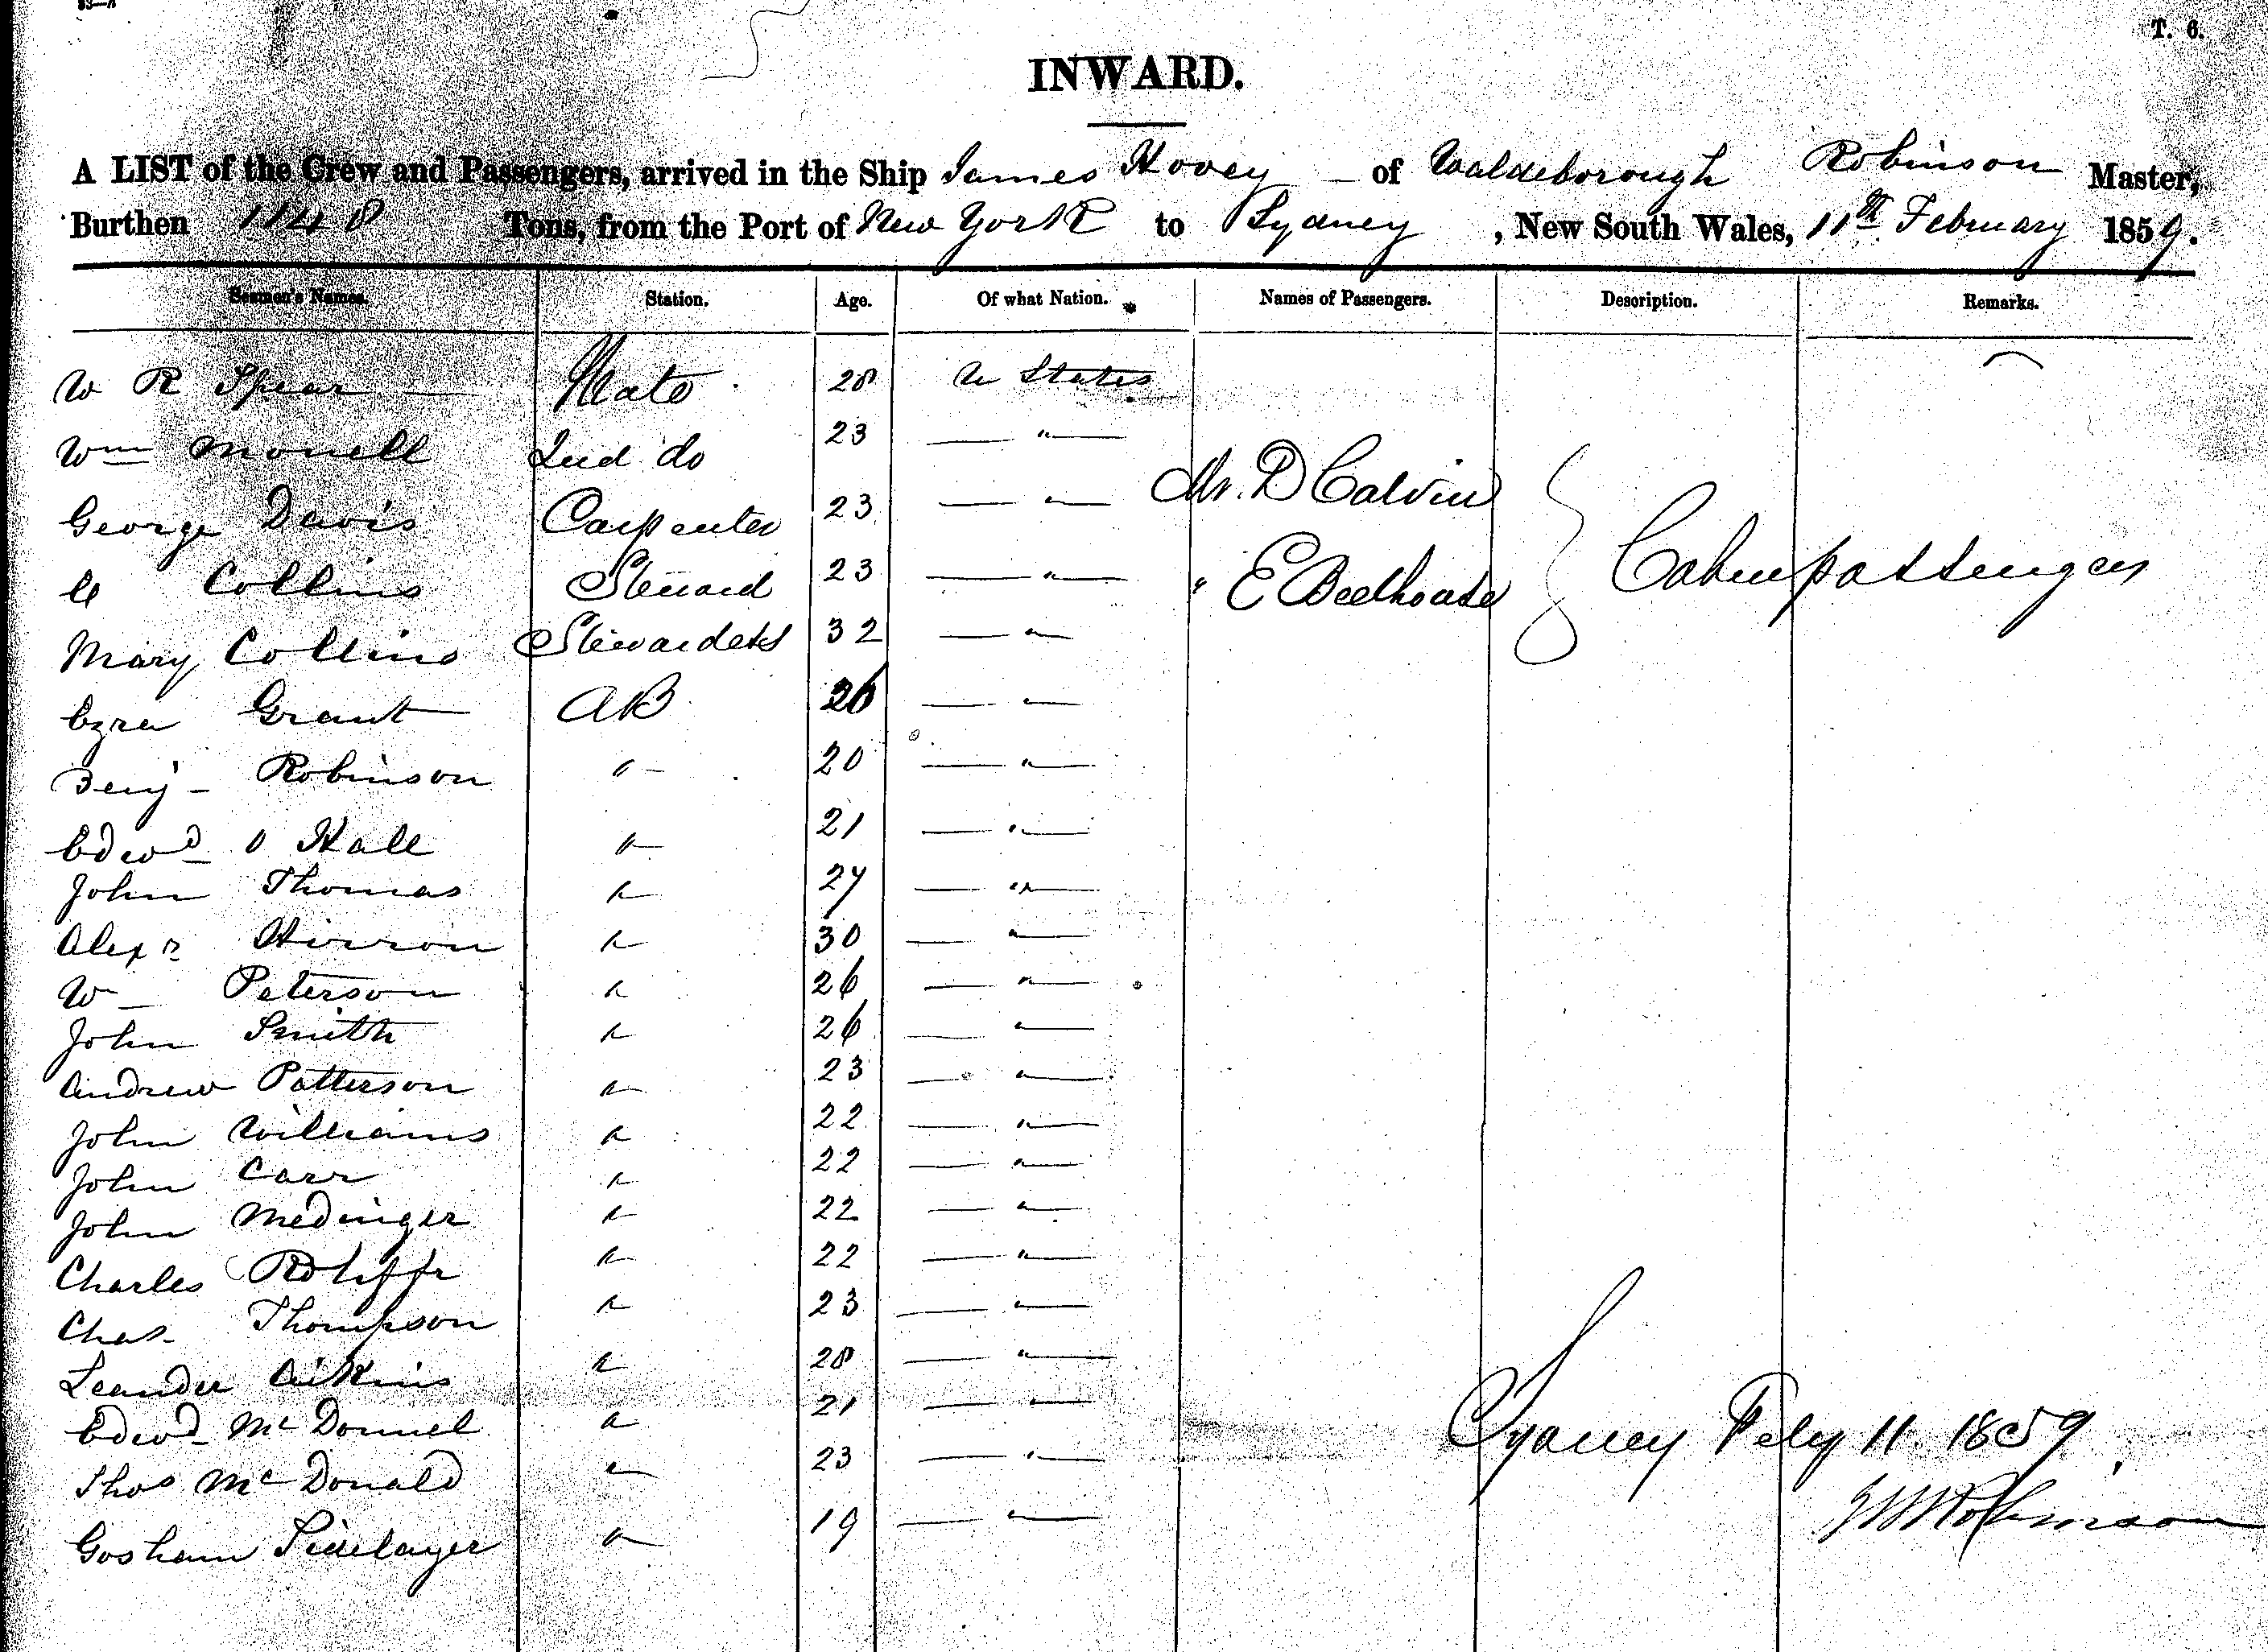 T. 6.
INWARD.
A LIST of the Crew and Passengers, arrived in the Ship James Hovey of Waldeborough Robinson Master,
Burthen 1148 Tons, from the Port of New York to Sydney , New South Wales, 11th February 1859.
Seamen's Names. Station. Age. Of what Nation. Names of Passengers. Description. Remarks.
W R Spear Mate 28 U States
Wm 2nd do 23 "
Mr. D Calvin
George Davis Carpenter 23 "
Collins Steward 23 "
" E Beelhouse Cabin passengers
Mary Collins Stewardess 32 "
Ezra Grant AB 26 "
Benj - Robinson " 20 "
Edwd O Hall " 21 "
John Thomas " 27 "
Alexr Hirron " 30 "
W Peterson " 26 "
John Smith " 26 "
Andrew Patterson " 23 "
John Williams " 22 "
John Carr " 22 "
John Medinger " 22 "
Charles " 22 "
Chas Thompson " 23 "
Leander Aitkins " 28 "
Edwd McDonnel " 21 "
Sydney Feby 11. 1859
Thos McDonald " 23 "
Robinson
" 19 "